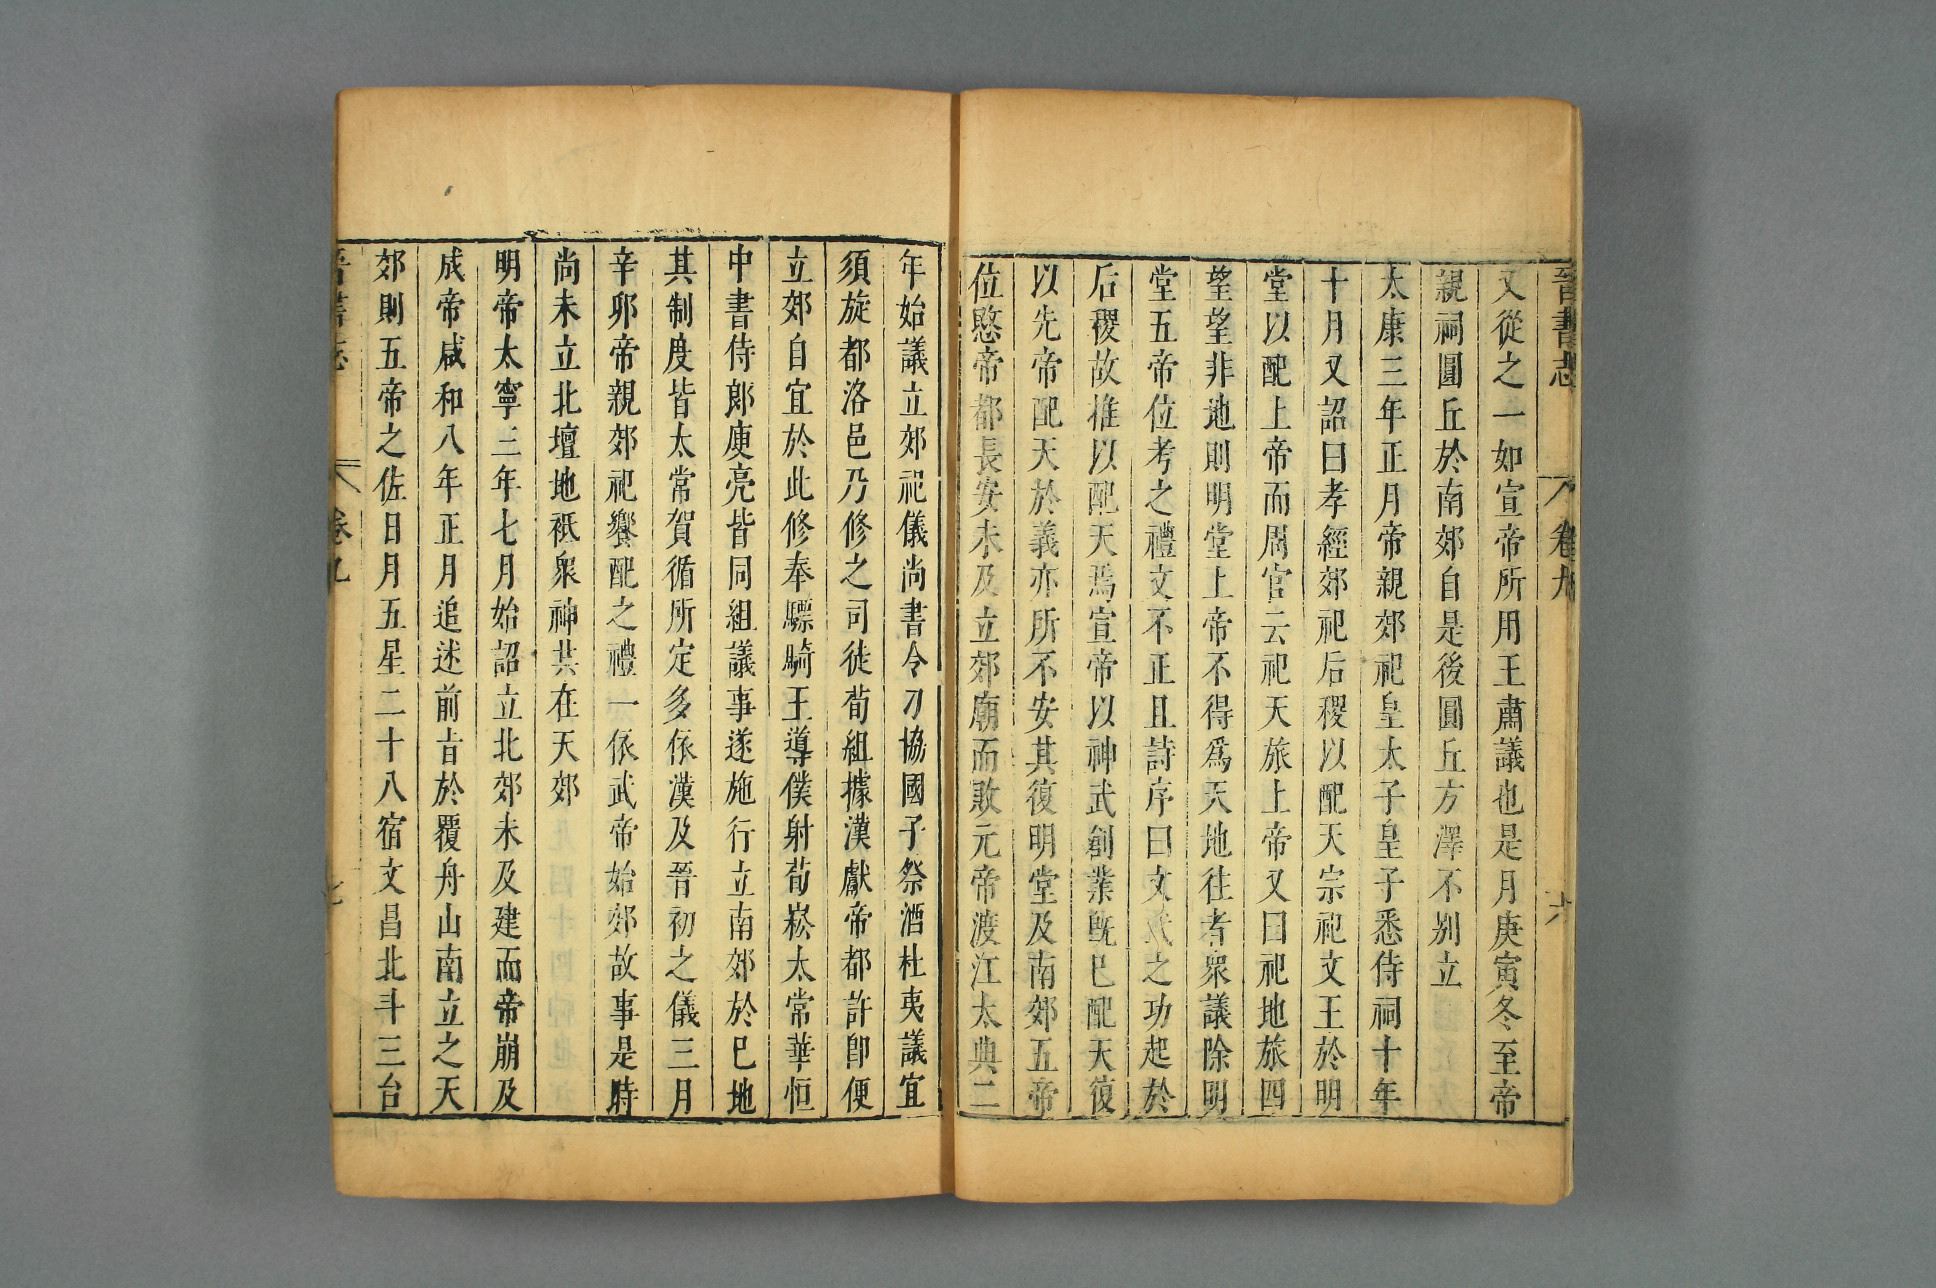 晉書志 卷九 六
又從之一如宣帝所用王肅議也是月庚寅冬至帝
親祠圓丘於南郊自是後圓丘方澤不别立
太康三年正月帝親郊祀皇太子皇子悉侍祠十年
十月又詔曰孝經郊祀后稷以配天宗祀文王於明
堂以配上帝而周官云祀天旅上帝又曰祀地旅四
望望非地則明堂上帝不得爲天地往者衆議除明
堂五帝位考之禮文不正且詩序曰文武之功起於
后稷故推以配天焉宣帝以神武創業旣巳配天復
以先帝配天於義亦所不安其復明堂及南郊五帝
位愍帝都長安未及立郊廟而敗元帝渡江太典二
年始議立郊祀儀尚書令刁協國子祭酒杜夷議宜
須旋都洛邑乃修之司徒荀組據漢獻帝都許卽便
立郊自宜於此修奉驃騎王導僕射荀崧太常華恒
中書侍郎庾亮皆同組議事遂施行立南郊於巳地
其制度皆太常賀循所定多依漢及晉初之儀三月
辛卯帝親郊祀饗配之禮一依武帝始郊故事是時
尚未立北壇地祇衆神共在天郊
明帝太寧三年七月始詔立北郊未及建而帝崩及
成帝咸和八年正月追述前旨於覆舟山南立之天
郊則五帝之佐日月五星二十八宿文昌北斗三台
晉書志 卷九 七